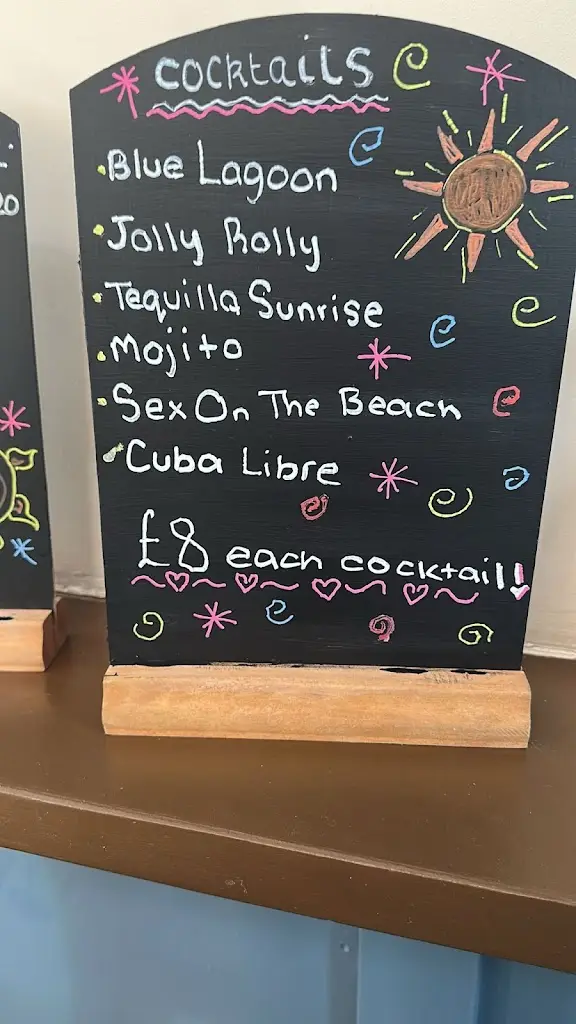 cocktails
Blue Lagoon
Jolly Rolly
Tequilla Sunrise
Mojito
Sex On The Beach
Cuba Libre
£8 each cocktail!
20